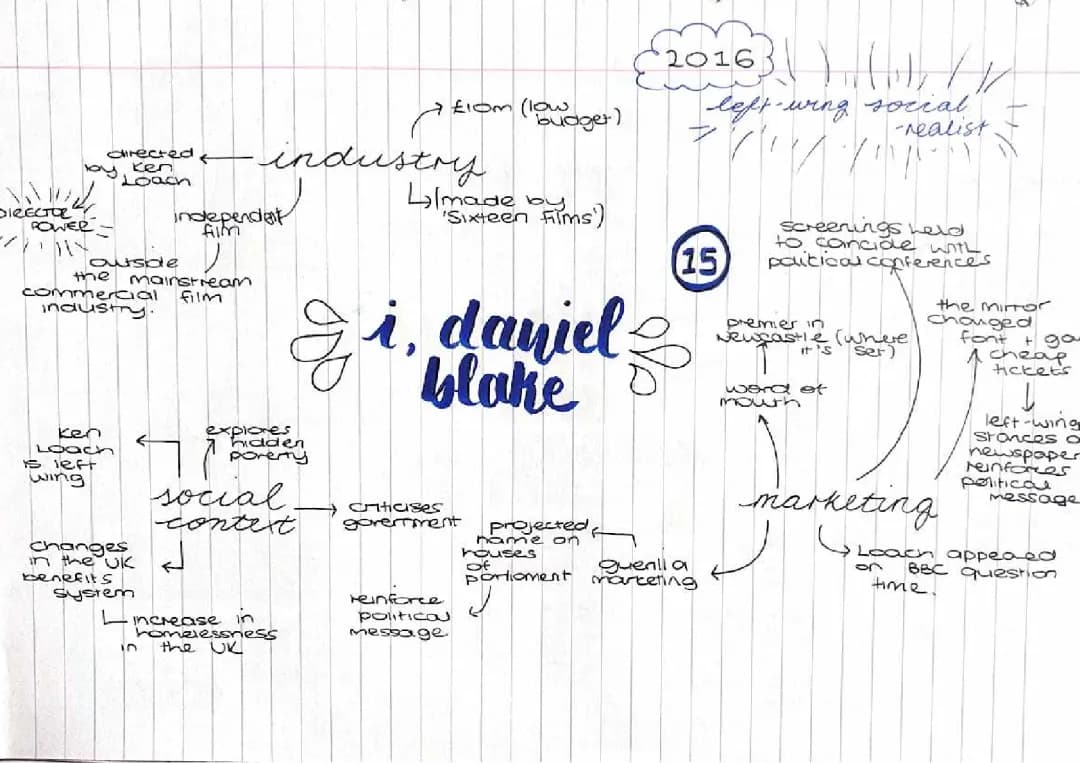 2016
left-wing social
-realist
£10m (low
budget)
industry
directed
by Ken
Loach
DIRECTOR
POWER
(made by
'Sixteen Films')
independent
film
outside
the mainstream
commercial film
industry.
15
i, daniel
blake
screenings held
to coincide with
political conferences
the mirror
changed
font +
cheap
tickets
left-wing
stances
newspaper
reinforces
political
message
premier in
Newcastle (where
it's set)
word of
mouth
marketing
Loach appeared
on BBC question
time.
guerilla
marketing
projected
name on
houses
of
parliament
reinforce
political
message
social
context
Ken
Loach
is left
wing
explores
hidden
poverty
criticises
government
changes
in the UK
benefits
system
increase in
homelessness
in the UK